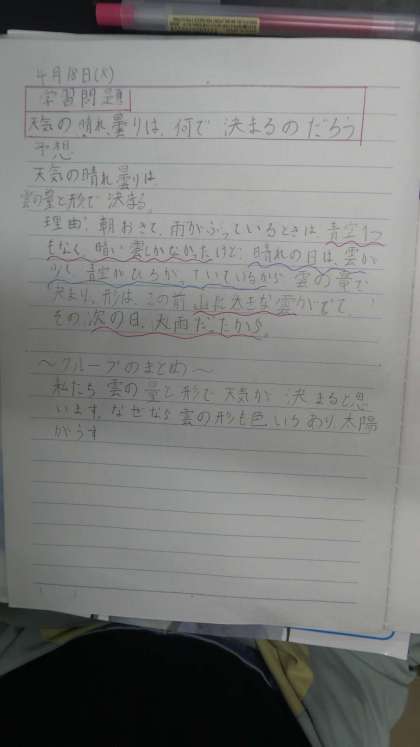 4月18日(火)
学習問題
天気の晴れ、曇りは、何で決まるのだろう
予想
天気の晴れ曇りは、
雲の量と形で決まる。
理由:朝おきて、雨がふっているときは青空1つ
もなく、暗い雲しかなかったけど、晴れの日は、雲が
少し青空がひろがっていているから雲の量で
決まり、形は、この前山に大きな雲がでて、
その次の日、大雨だったから。
〜グループのまとめ〜
私たち雲の量と形で天気が決まると思
います。なぜなら雲の形も色いろあり、太陽
がうす